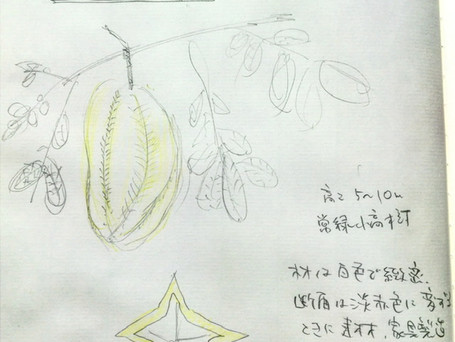 高さ 5~10m
常緑小高樹
材は白色で緻密、
断面は淡赤色に
ときに素材、家具製造